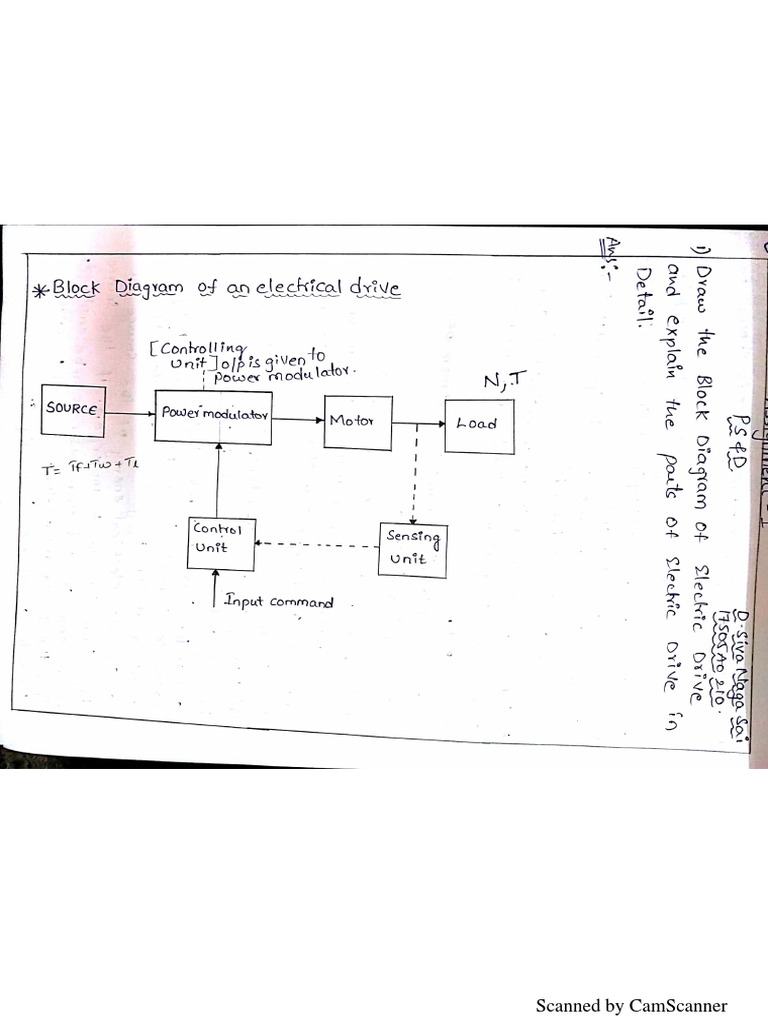 Assignment - 1
PS & D
D. Siva Naga Sai
17505A0210.
1) Draw the Block Diagram of Electric Drive
and explain the parts of Electric Drive in
Detail.
Ans:-
* Block Diagram of an electrical drive
[Controlling
unit] o/p is given to
power modulator.
N, T
SOURCE
Power modulator
Motor
Load
T = Tf + Tw + TL
Control
Unit
Sensing
unit
Input command
Scanned by CamScanner